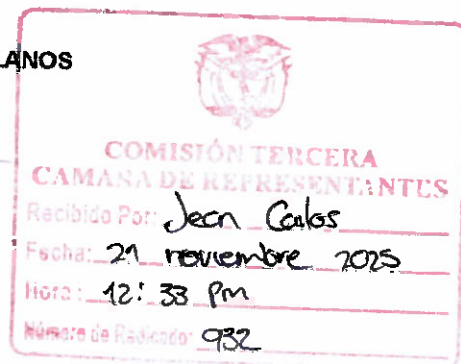 LANOS
COMISIÓN TERCERA
CAMARA DE REPRESENTANTES
Recibido Por: Jean Carlos
Fecha: 21 noviembre 2025
Hora: 12:33 pm
Número de Radicado: 932